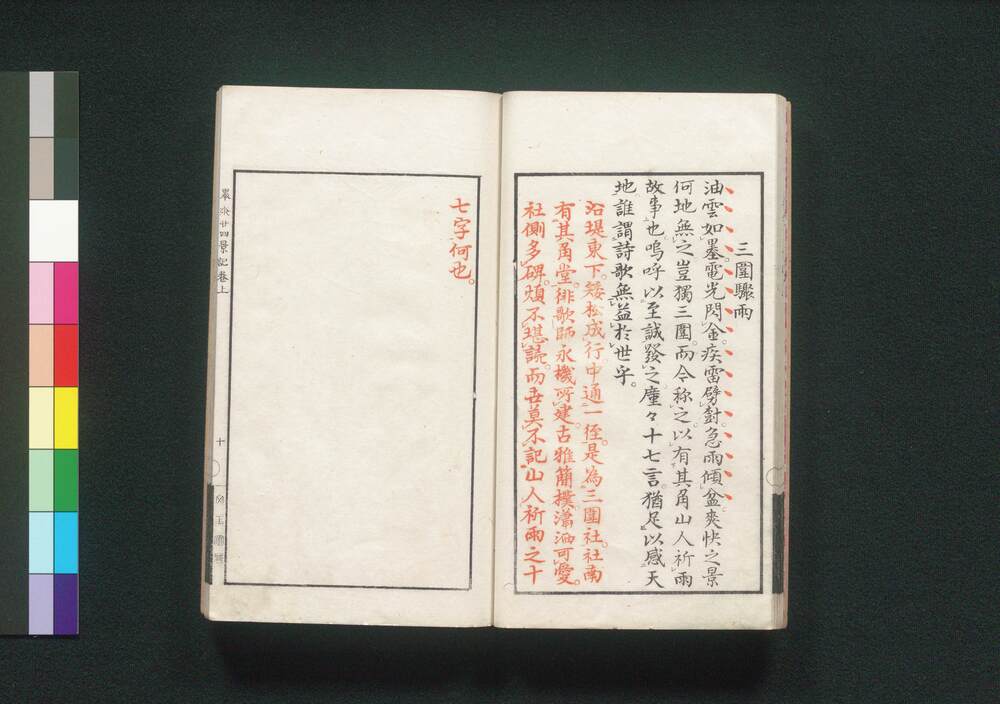 三圍驟雨
油雲如墨。電光閃金。疾雷劈對。急雨傾盆。爽快之景
何地無之。豈獨三圍。而今称之。以有其角山人祈雨
故事也。嗚呼以至誠發之。廑々十七言。猶足以感天
地。誰謂詩歌無益於世乎。
沿堤東下。矮松成行。中通一徑。是為三圍社。社南
有其角堂。俳歌師永機所建。古雅簡撲。瀟洒可愛。
社側多碑。煩不堪読。而去莫不記山人祈雨之十
七字何也。
墨水廿四景記卷上
十